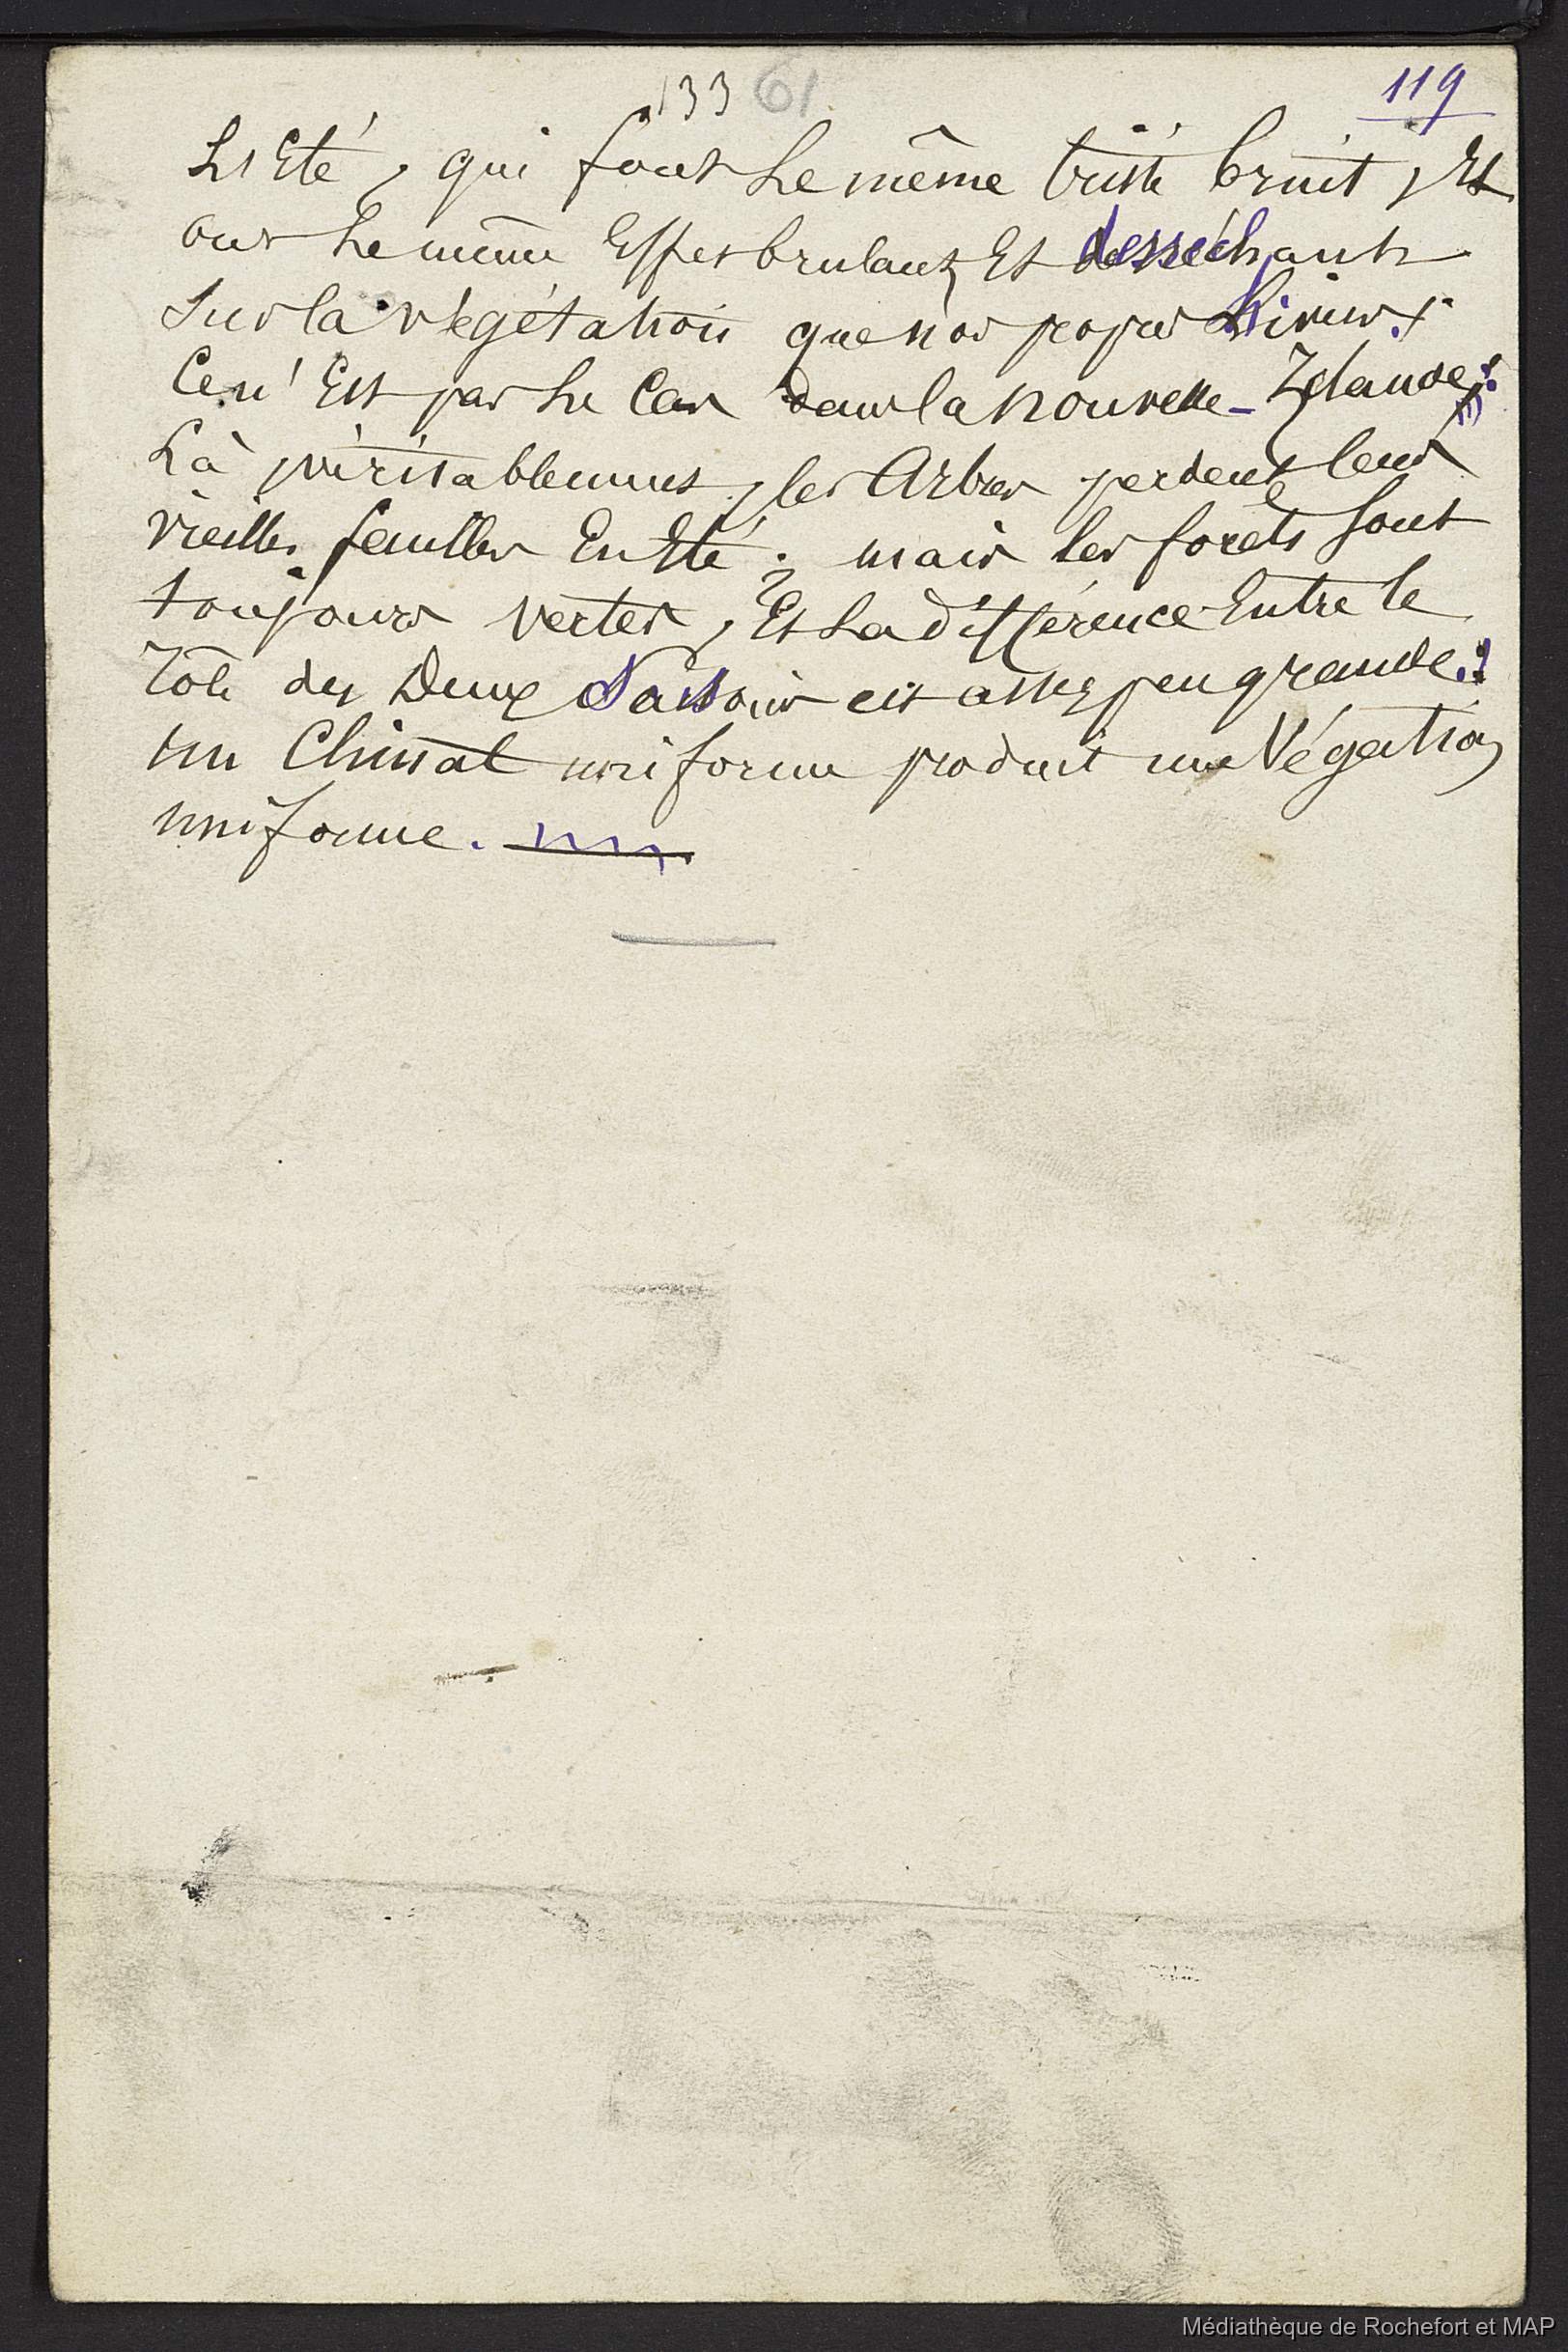 133 61 119
L'Eté, qui font le même triste bruit, Et
ont le même Effet brulant Et desséchant
sur la végétation que nos propres hivers.
Ce n'Est pas le Cas dans la nouvelle-Zélande:
Là véritablement, les Arbres perdent leurs
vieilles feuilles En Eté; mais les forêts sont
toujours vertes, Et la différence Entre le
rôle des Deux Saisons est assez peu grande:
un Climat uniforme produit une Végétation
uniforme.
Médiathèque de Rochefort et MAP